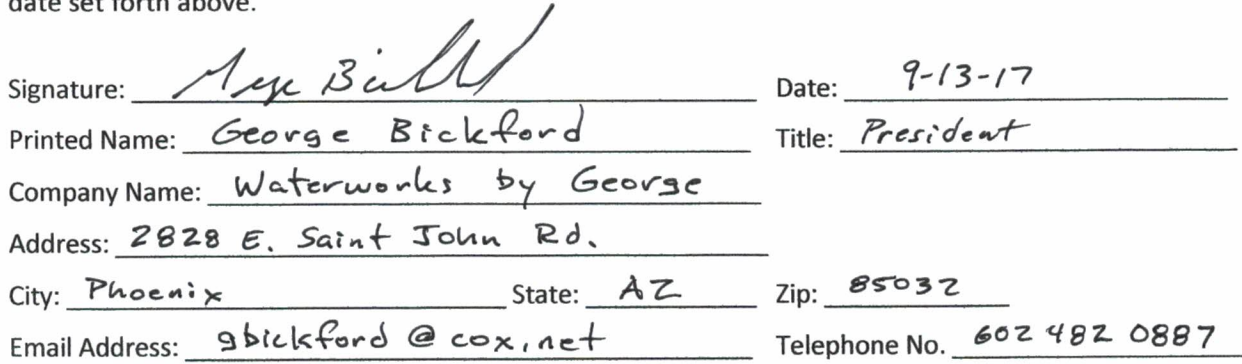 date set forth above.
Signature: George Bickford Date: 9-13-17
Printed Name: George Bickford Title: President
Company Name: Waterworks by George
Address: 2828 E. Saint John Rd.
City: Phoenix State: AZ Zip: 85032
Email Address: gbickford @ cox.net Telephone No. 602 482 0887